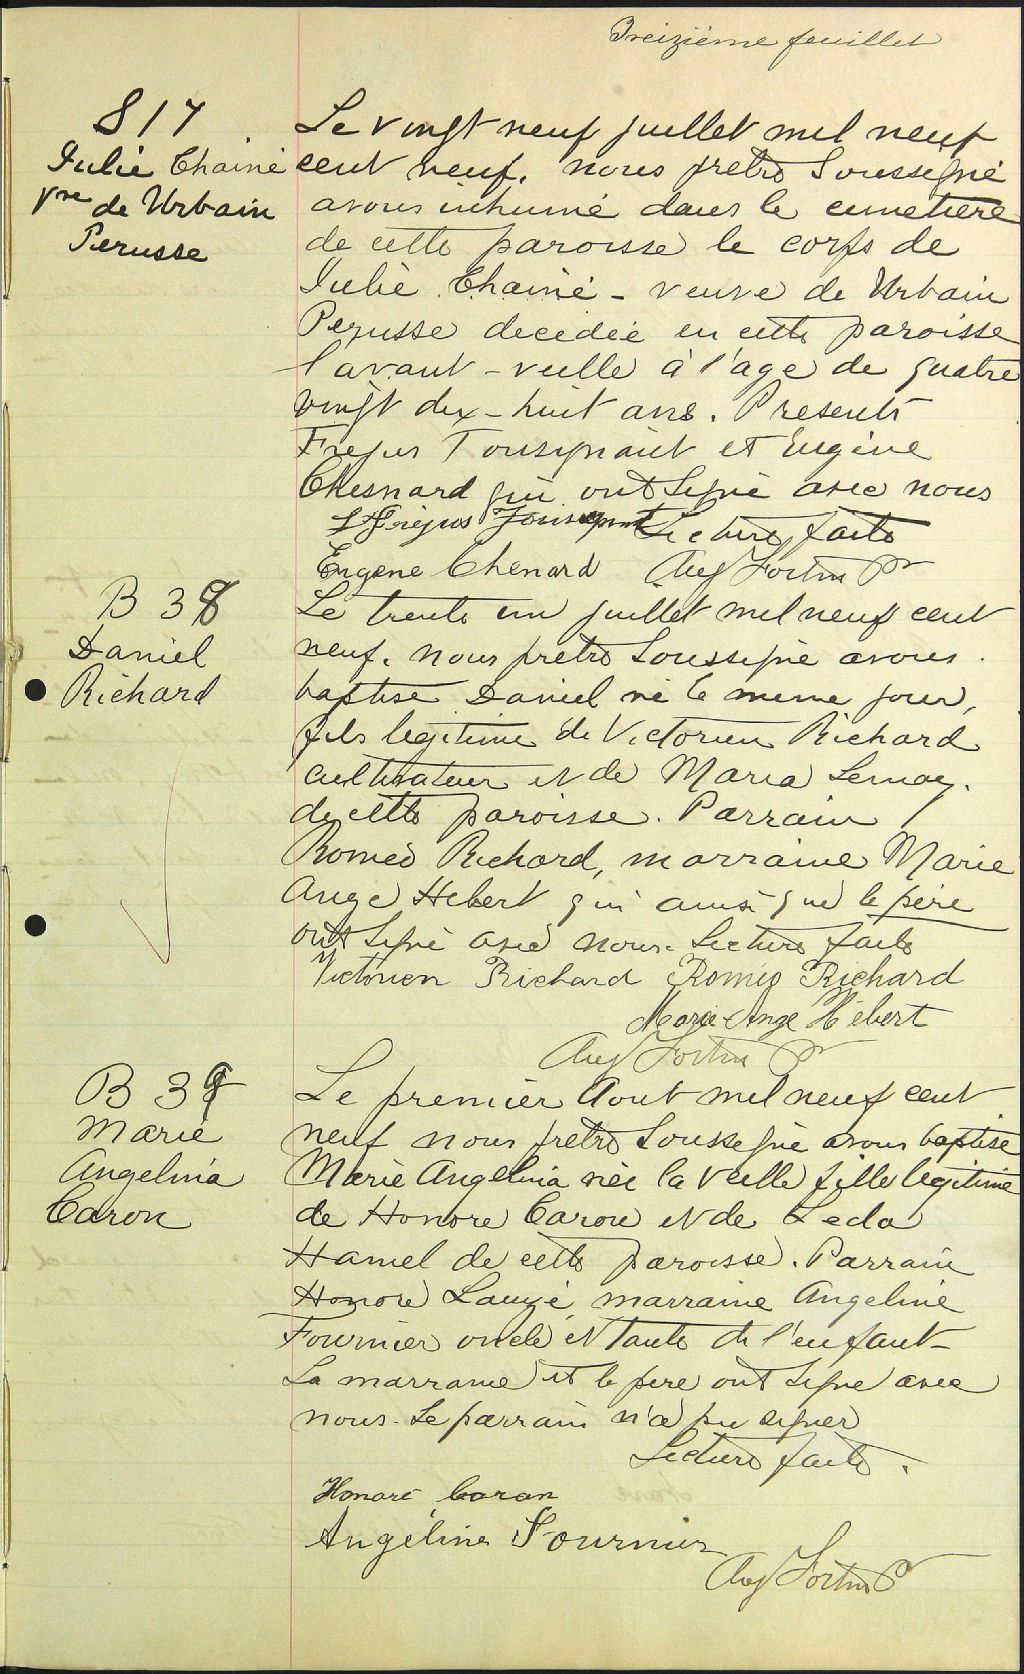 Treizième feuillet
S 17
Julie Chainé
Vve de Urbain
Perusse
Le vingt neuf juillet mil neuf
cent neuf, nous prêtre Soussigné
avons inhumé dans le cimetière
de cette paroisse le corps de
Julie Chainé - veuve de Urbain
Perusse decedée en cette paroisse
l'avant-veille à l'age de quatre
vingt dix-huit ans. Presents
Frejus Tousignant et Eugène
Chesnard qui ont signé avec nous
Fréjus Tousignant Lecture faite
Eugene Chenard Aug Fortin Ptr
B 38
Daniel
Richard
Le trente un juillet mil neuf cent
neuf, nous prêtre Soussigné avons
baptisé Daniel né le meme jour,
fils legitime de Victorien Richard
cultivateur et de Maria Lemay.
de cette paroisse. Parrain
Roméo Richard, marraine Marie
Ange Hebert qui ainsi que le père
ont signé avec nous. Lecture faite
Victorien Richard Roméo Richard
Marie-Ange Hébert
Aug Fortin Ptr
B 39
Marie
Angelina
Caron
Le premier Aout mil neuf cent
neuf nous prêtre Soussigné avons baptisé
Marie Angelina née la veille fille legitime
de Honoré Caron et de Leda
Hamel de cette paroisse. Parrain
Honoré Lauzé, marraine Angeline
Fournier oncle et tante de l'enfant-
La marraine et le père ont signé avec
nous. Le parrain n'a pu signer
Lecture faite.
Honoré Caron
Angéline Fournier
Aug Fortin P